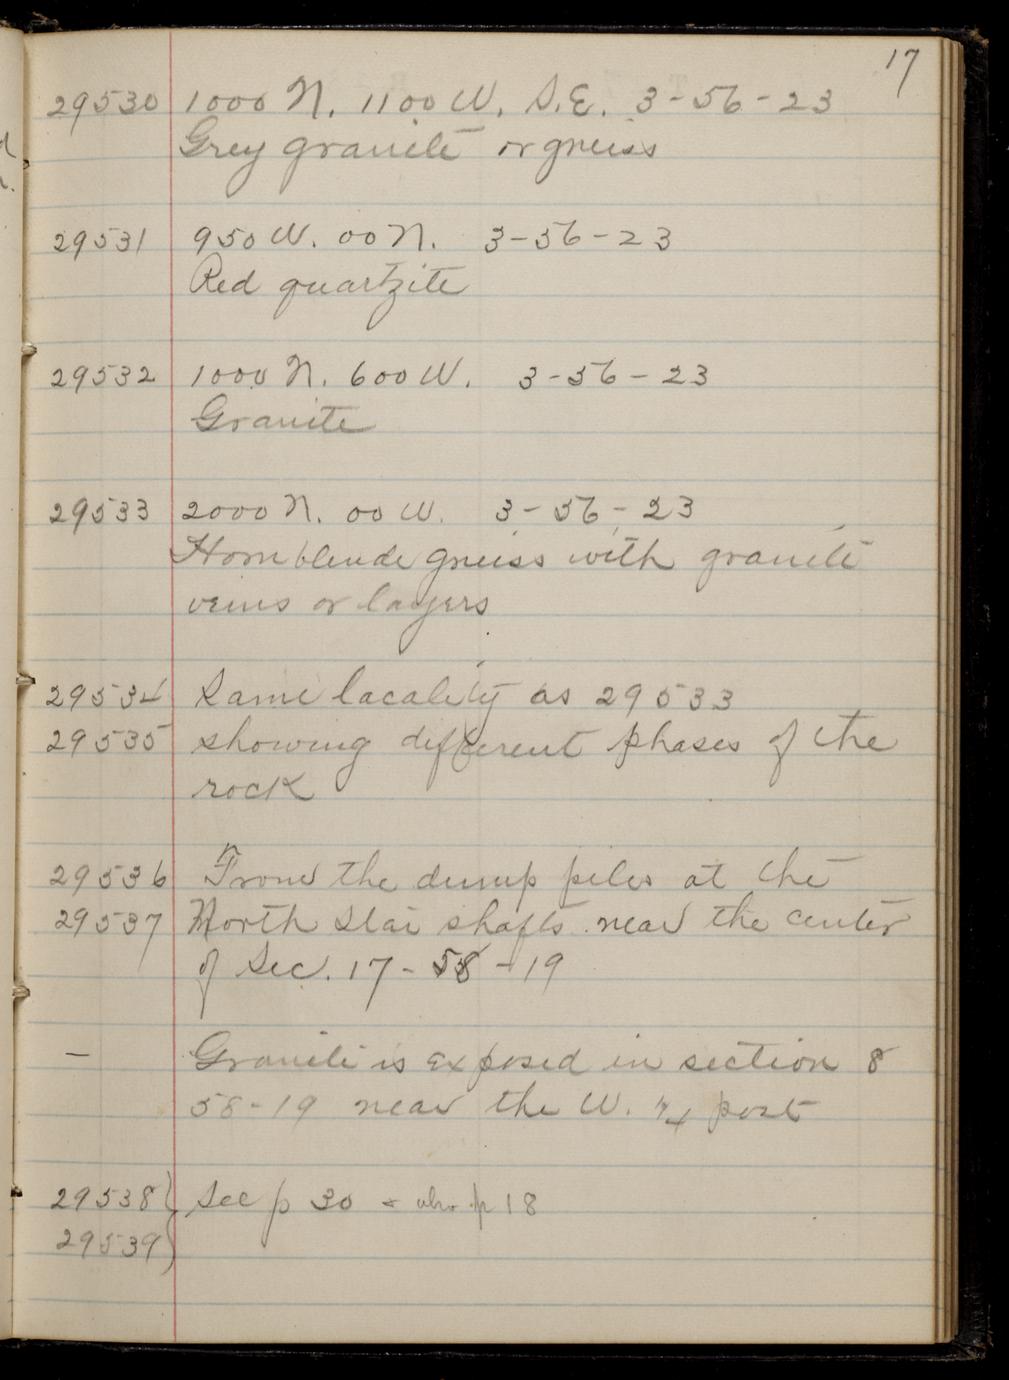 17
29530 1000 N. 1100 W. S.E. 3-56-23
Grey granite or gneiss
29531 950 W. 00 N. 3-56-23
Red quartzite
29532 1000 N. 600 W. 3-56-23
Granite
29533 2000 N. 00 W. 3-56-23
Hornblende gneiss with granite
veins or layers
29534 Same locality as 29533
29535 showing different phases of the
rock
29536 From the dump piles at the
29537 North Star shafts near the center
of Sec. 17-58-19
— Granite is exposed in section 8
58-19 near the W. 1/4 post
29538 } See p 30 & also p 18
29539 }